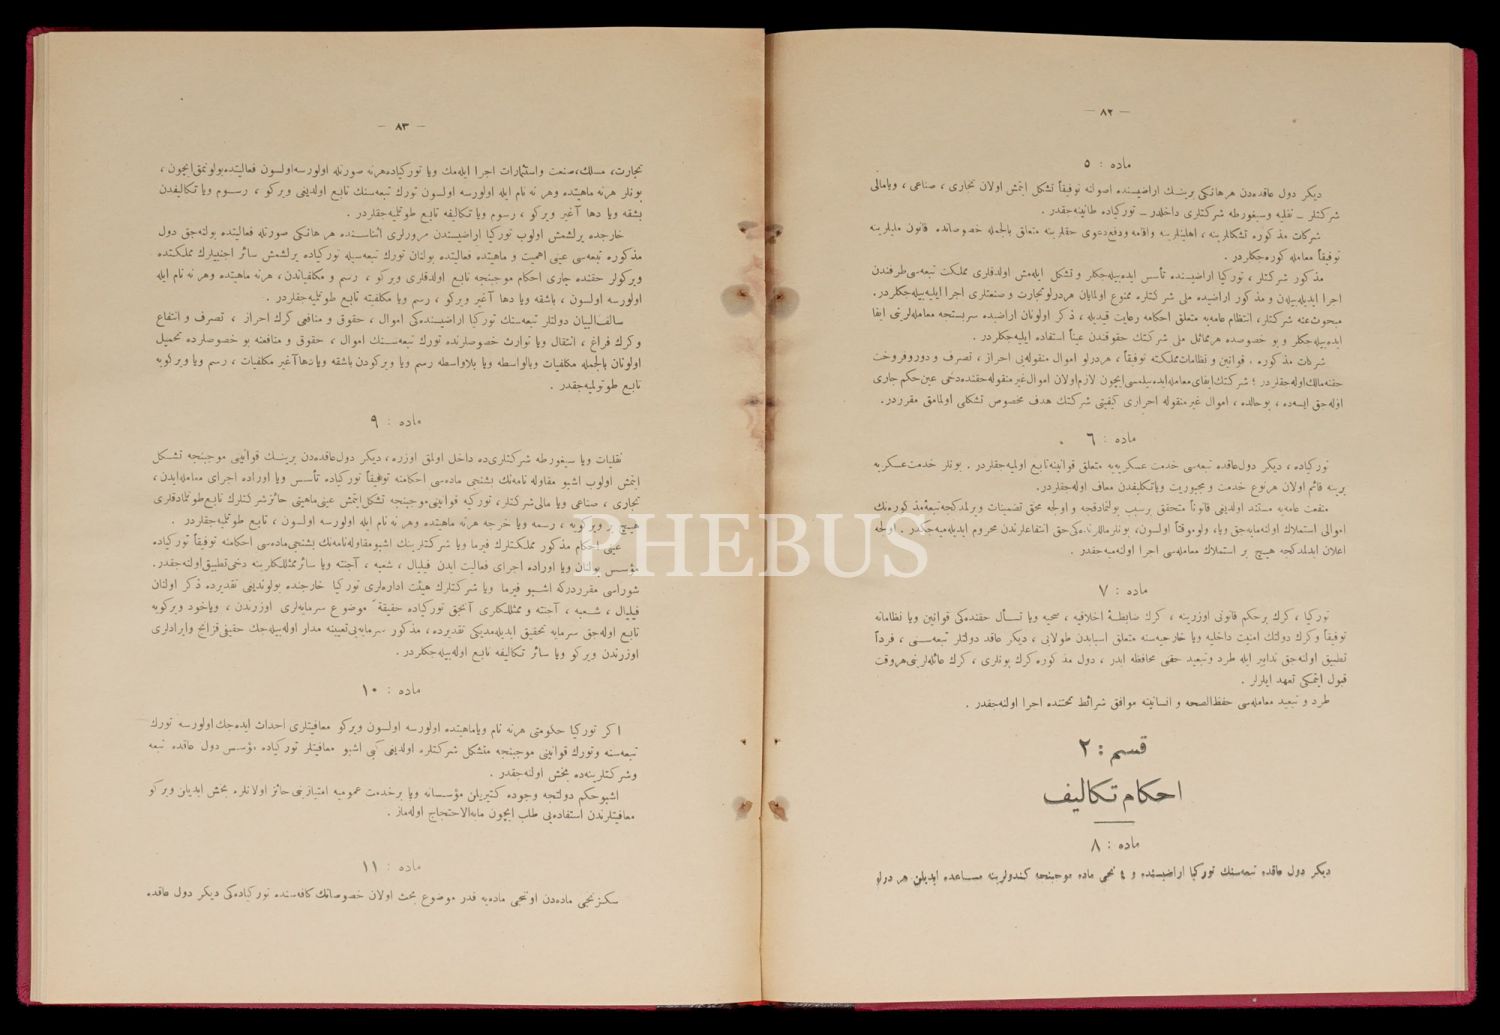 — ٨٢ —
ماده : ٥
ديكر دول عاقده‌دن هر هانكى برينك اراضيسنده اصولنه توفيقاً تشكل ايتمش اولان تجارى ، صناعى ، ويامالى
شركتلر ـ نقليه وسيغورطه شركتلرى داخلدر ـ توركياده طانينه‌جقدر .
شركات مذكوره تشكللرينه ، اهليتلرينه واقامه ودفع دعوى حقلرينه متعلق بالجمله خصوصاتده قانون مليلرينه
توفيقاً معامله كوره‌جكلردر .
مذكور شركتلر ، توركيا اراضيسنده تأسس ايده‌بيله‌جكلر و تشكل ايله‌مش اولدقلرى مملكت تبعه‌سى طرفندن
اجرا ايديله‌بيلن و مذكور اراضيده ملى شركتلره ممنوع اولمايان هر درلو تجارت و صنعتلرى اجرا ايليه‌بيله‌جكلردر .
مبحوث عنه شركتلر ، انتظام عامه‌يه متعلق احكامه رعايت قيديله ، ذكر اولونان اراضيده سربستجه معامله‌لرينى ايفا
ايده‌بيله‌جكلر و بو خصوصده هر مماثل ملى شركتك حقوقندن عيناً استفاده ايليه‌جكلردر .
شركات مذكوره ، قوانين و نظامات مملكته توفيقاً ، هر درلو اموال منقوله‌يى احراز ، تصرف و دور و فروخت
حقنه مالك اوله‌جقلردر ؛ شركتك ايفاى معامله ايده‌بيلمسى ايچون لازم اولان اموال غير منقوله حقنده دخى عين حكم جارى
اوله‌جق ايسه‌ده ، بو حالده ، اموال غير منقوله احرازى كيفيتى شركتك هدف مخصوص تشكلى اولمامق مقرردر .
ماده : ٦
توركياده ، ديكر دول عاقده تبعه‌سى خدمت عسكريه‌يه متعلق قوانينه تابع اولميه‌جقلردر . بونلر خدمت عسكريه
يرينه قائم اولان هر نوع خدمت و مجبوريت وياتكليفدن معاف اوله‌جقلردر .
منفعت عامه‌يه مستند اولديغى قانوناً متحقق برسبب بولنمادقجه و اولجه محق تضمينات ويرلمدكجه تبعۀ مذكوره‌نك
اموالى استملاك اولنه‌مايه‌جق ويا ، ولو موقتاً اولسون ، بونلر ماللرنده‌كى حق انتفاعلرندن محروم ايديلميه‌جكدر . اولجه
اعلان ايدلمدكجه هيچ بر استملاك معامله‌سى اجرا اولنه‌ميه‌جقدر .
ماده : ٧
توركيا ، كرك برحكم قانونى اوزرينه ، كرك ضابطۀ اخلاقيه ، صحيه ويا تسأل حقنده‌كى قوانين ويا نظاماته
توفيقاً وكرك دولتك امنيت داخليه ويا خارجيه‌سنه متعلق اسبابدن طولايى ، ديكر عاقد دولتلر تبعه‌سنى ، فرداً
تطبيق اولنه‌جق تدابير ايله طرد وتبعيد حقنى محافظه ايدر ، دول مذكوره كرك بونلرى ، كرك عائله‌لرينى هر وقت
قبول ايتمكى تعهد ايلرلر .
طرد و تبعيد معامله‌سى حفظ الصحه و انسانيته موافق شرائط تحتنده اجرا اولنه‌جقدر .
قسم : ٢
احكام تكاليف
ماده : ٨
ديكر دول عاقده تبعه‌سنك توركيا اراضيسنده و ٤ نجى ماده موجبنجه كندولرينه مساعده ايديلن هر درلو
— ٨٣ —
تجارت ، مسلك ، صنعت واستثمارات اجرا ايله‌مك ويا توركياده هر نه صورتله اولورسه اولسون فعاليتده بولونمق ايچون ،
بونلر هر نه ماهيتده وهر نه نام ايله اولورسه اولسون تورك تبعه‌سنك تابع اولديغى ويركو ، رسوم ويا تكاليفدن
بشقه ويا دها آغير ويركو ، رسوم ويا تكاليفه تابع طوتلميه‌جقلردر .
خارجده يرلشمش اولوب توركيا اراضيسندن مرورلرى اثناسنده هر هانكى صورتله فعاليتده بولنه‌جق دول
مذكوره تبعه‌سى عينى اهميت و ماهيتده فعاليتده بولنان تورك تبعه‌سيله توركياده يرلشمش سائر اجنبيلرك مملكتنده
ويركولر حقنده جارى احكام موجبنجه تابع اولدقلرى ويركو ، رسم و مكلفياتدن ، هر نه ماهيتده وهر نه نام ايله
اولورسه اولسون ، باشقه ويا دها آغير ويركو ، رسم ويا مكلفيته تابع طوتلميه‌جقلردر .
سالف البيان دولتلر تبعه‌سنك توركيا اراضيسنده‌كى اموال ، حقوق و منافعى كرك احراز ، تصرف و انتفاع
وكرك فراغ ، انتقال ويا توارث خصوصلرنده تورك تبعه‌سنك اموال ، حقوق و منافعنه بو خصوصلرده تحميل
اولونان بالجمله مكلفيات وبالواسطه ويا بلاواسطه رسم ويا ويركودن باشقه ويا دها آغير مكلفيات ، رسم ويا ويركويه
تابع طوتولميه‌جقدر .
ماده : ٩
نقليات ويا سيغورطه شركتلرى ده داخل اولمق اوزره ، ديكر دول عاقده‌دن برينك قوانينى موجبنجه تشكل
ايتمش اولوب اشبو مقاوله‌نامه‌نك بشنجى ماده‌سى احكامنه توفيقاً توركياده تأسس ويا اوراده اجراى معامله ايدن ،
تجارى ، صناعى ويا مالى شركتلر ، توركيه قوانينى موجبنجه تشكل ايتمش عينى ماهيتى حائز شركتلرك تابع طوتلمادقلرى
هيچ بر ويركويه ، رسمه ويا خرجه هر نه ماهيتده وهر نه نام ايله اولورسه اولسون ، تابع طوتلميه‌جقلردر .
عينى احكام مذكور مملكتلرك فيرما ويا شركتلرينك اشبو مقاوله‌نامه‌نك بشنجى ماده‌سى احكامنه توفيقاً توركياده
مؤسس بولنان ويا اوراده اجراى فعاليت ايدن فيليال ، شعبه ، آجنته ويا سائر ممثللكلرينه دخى تطبيق اولنه‌جقدر .
شوراسى مقرردركه اشبو فيرما ويا شركتلرك هيئت اداره‌لرى توركيا خارجنده بولونديغى تقديرده ذكر اولنان
فيليال ، شعبه ، آجنته و ممثللكلرى آنجق توركياده حقيقةً موضوع سرمايه‌لرى اوزرندن ، وياخود ويركويه
تابع اوله‌جق سرمايه تحقيق ايديله‌مديكى تقديرده ، مذكور سرمايه‌يى تعيينه مدار اوله‌بيله‌جك حقيقى قزانج وايرادلرى
اوزرندن ويركو ويا سائر تكاليفه تابع اوله‌بيله‌جكلردر .
ماده : ١٠
اكر توركيا حكومتى هر نه نام وياماهيتده اولورسه اولسون ويركو معافيتلرى احداث ايده‌جك اولورسه تورك
تبعه‌سنه وتورك قوانينى موجبنجه متشكل شركتلره اولديغى كبى اشبو معافيتلر توركياده مؤسس دول عاقده تبعه
وشركتلرينه‌ده بخش اولنه‌جقدر .
اشبو حكم دولتجه وجوده كتيريلن مؤسساته ويا برخدمت عموميه امتيازينى حائز اولانلره بخش ايديلن ويركو
معافيتلرندن استفاده‌يى طلب ايچون مابه‌الاحتجاج اوله‌ماز .
ماده : ١١
سكزنجى ماده‌دن اونجى ماده‌يه قدر موضوع بحث اولان خصوصاتك كافه‌سنده توركياده‌كى ديكر دول عاقده
PHEBUS